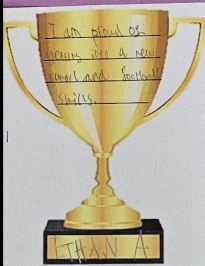 I am proud of
getting into a new
school and football
skills.
ETHAN A